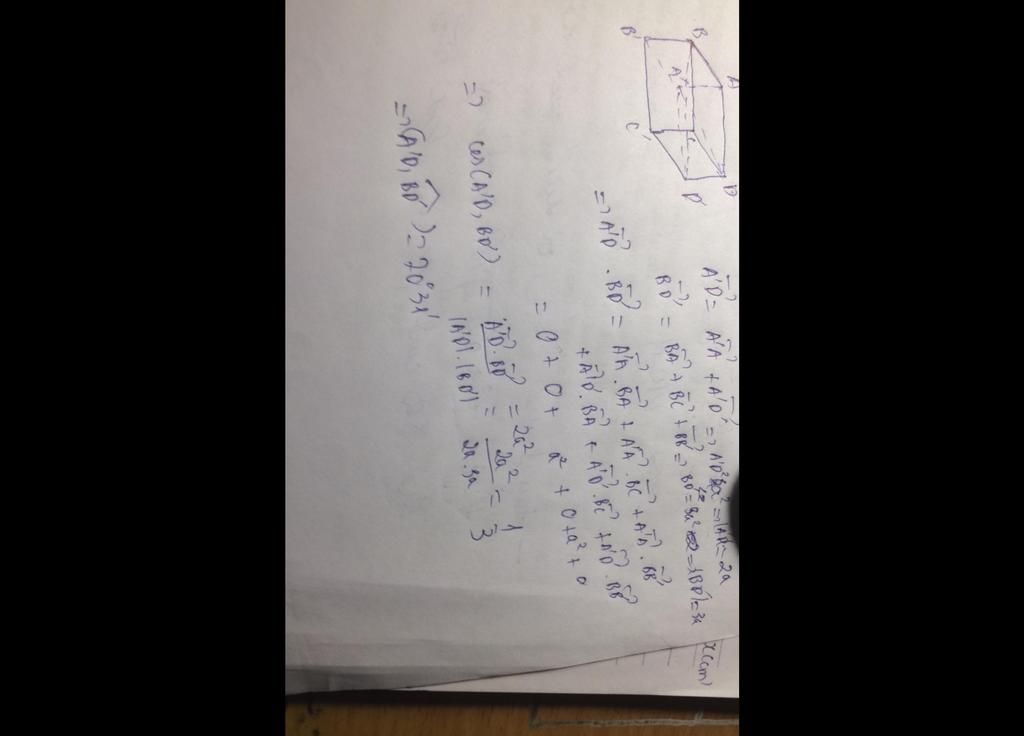 B' B A A' C' C D' D
A'D = A'A + A'D' => A'D² = |A'D| = 2a
BD' = BA + BC + BB' => BD' = |BD'| = 3a
=> A'D . BD' = A'A . BA + A'A . BC + A'A . BB'
+ A'D' . BA + A'D' . BC + A'D' . BB'
= 0 + 0 + a² + 0 + a² + 0
= 2a²
=> cos(A'D, BD') = A'D . BD' / |A'D| . |BD'| = 2a² / 2a . 3a = 1 / 3
=> (A'D, BD') = 70°31'
x(cm)